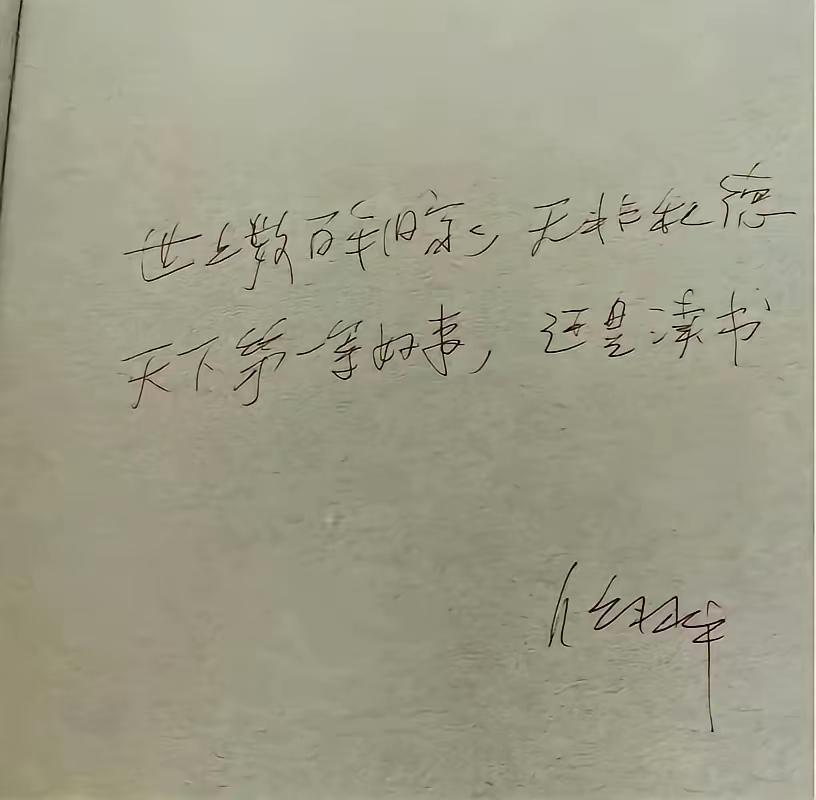 世上数百年旧家，无非积德
天下第一等好事，还是读书